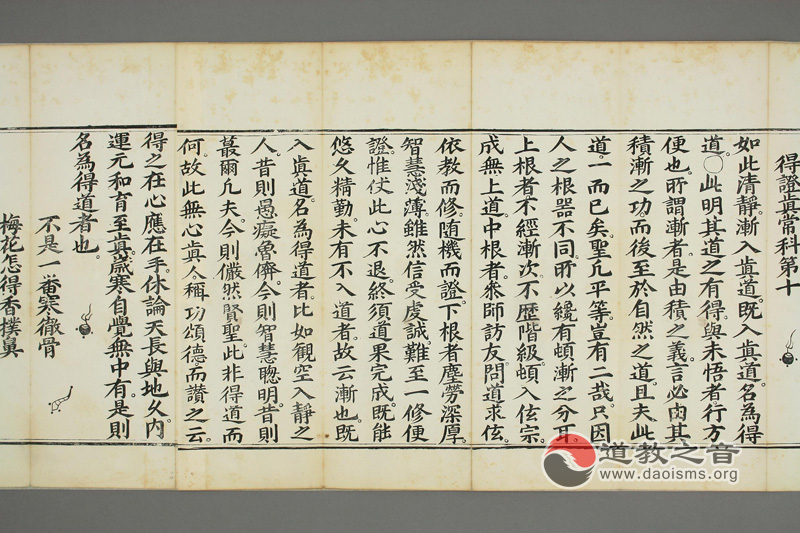 得證眞常科第十
如此清靜漸入眞道。既入眞道。名為得
道。〇此明其道之有得與未悟者行方
便也。所謂漸者是由積之義。言必因其
積漸之功。而後至於自然之道。且夫此
道一而已矣。聖凡平等。豈有二哉。只因
人之根器不同。所以纔有頓漸之分耳。
上根者不經漸次。不歷階級。頓入㢠宗。
成無上道。中根者叅師訪友。問道求㢠。
依教而修。随機而證。下根者塵勞深厚。
智慧淺薄。雖然信受虔誠。難至一修便
證。惟仗此心不退。終須道果完成。既能
悠久精勤。未有不入道者。故云漸也。既
入眞道。名為得道者。比如觀空入静之
人。昔則愚癡魯儕。今則智慧聰明。昔則
蕞爾凢夫。今則儼然賢聖。此非得道而
何。故此無心眞人稱功頌德而讚之云。
得之在心應在手。休論天長與地久。内
運元和育至眞。歲寒自覺無中有。是則
名為得道者也。
不是一畨寒徹骨
梅花怎得香撲鼻
道教之音
www.daoisms.org